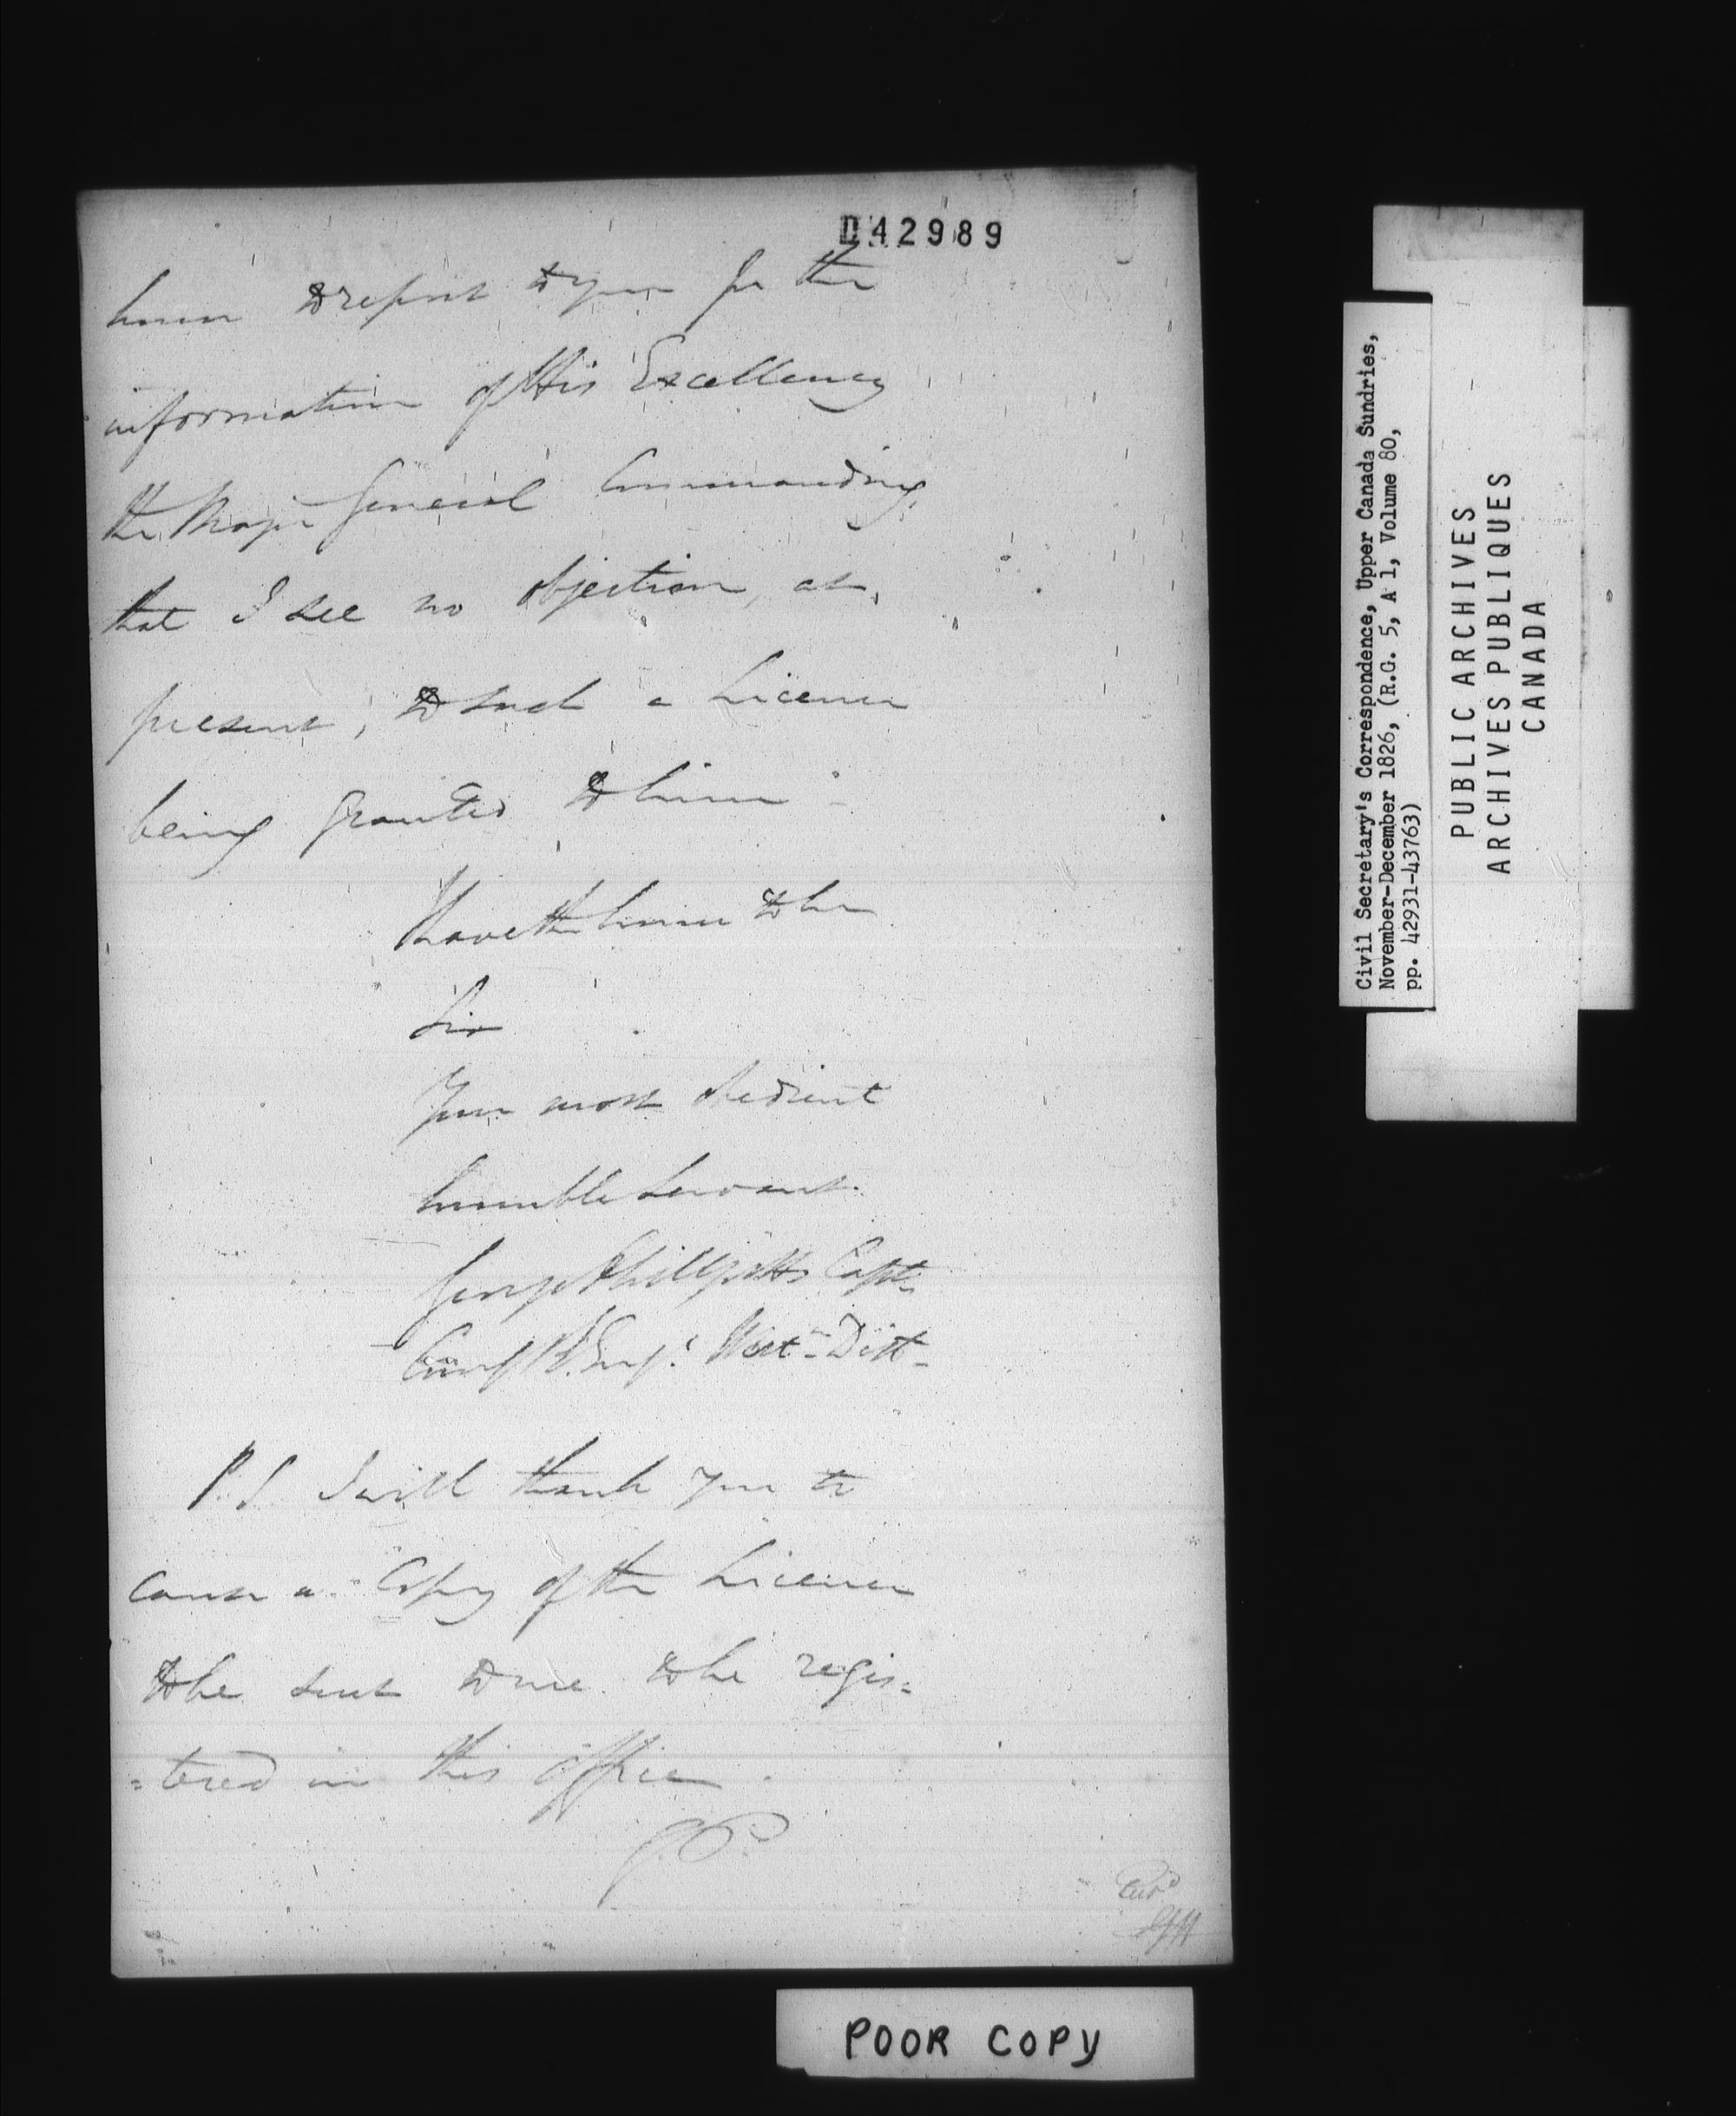 D42989
honor to report to you for the
information of His Excellency
the Major General Commanding,
that I see no objection, at,
present, to such a Licence
being granted to him -
I have the honor to be
Sir
Your most obedient
humble Servant.
George Phillpotts Capt:
Com.g R. Eng.s West.n Dist.
P.S. I will thank you to
cause a Copy of the Licence
to be sent to me to be regis:
:tered in this office.
G.P.
Civil Secretary's Correspondence, Upper Canada Sundries,
November-December 1826, (R.G. 5, A 1, Volume 80,
pp. 42931-43763)
PUBLIC ARCHIVES
ARCHIVES PUBLIQUES
CANADA
POOR COPY